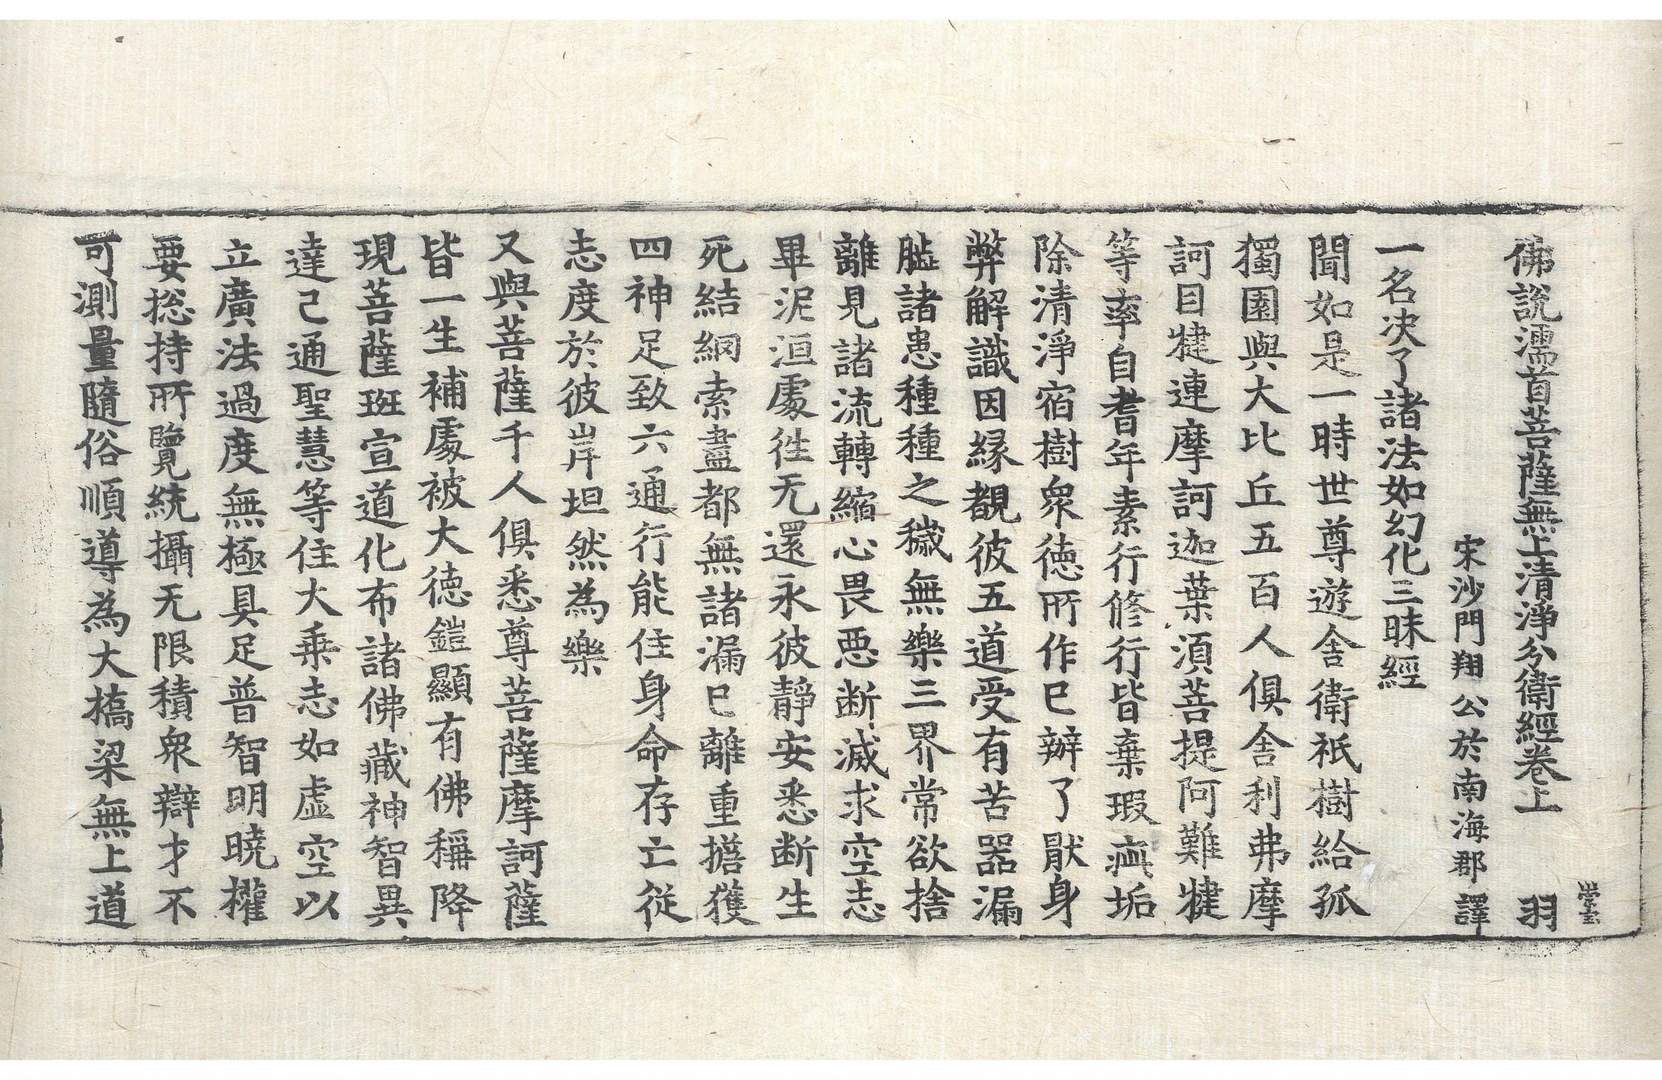 佛說濡首菩薩無上清淨分衛經卷上 羽
宋沙門翔公於南海郡譯
一名決了諸法如幻化三昧經
聞如是一時世尊遊舍衛祇樹給孤
獨園與大比丘五百人俱舍利弗摩
訶目揵連摩訶迦葉湏菩提阿難揵
等率自耆年素行修行皆棄瑕疵垢
除清淨宿樹衆徳所作已辦了猒身
弊解識因緣覩彼五道受有苦器漏
諸患種種之穢無樂三界常欲捨
離見諸流轉縮心畏惡断滅求空志
畢泥洹處徃无還永彼靜安悉断生
死結網索盡都無諸漏已離重擔獲
四神足致六通行能住身命存亡従
志度於彼岸坦然為樂
又與菩薩千人俱悉尊菩薩摩訶薩
皆一生補處被大徳鎧顯有佛稱降
現菩薩斑宣道化布諸佛藏神智異
達已通聖慧等住大乗志如虛空以
立廣法過度無極具足普智明曉權
要捴持所覽統攝无限積衆辯才不
可測量隨俗順導為大橋梁無上道